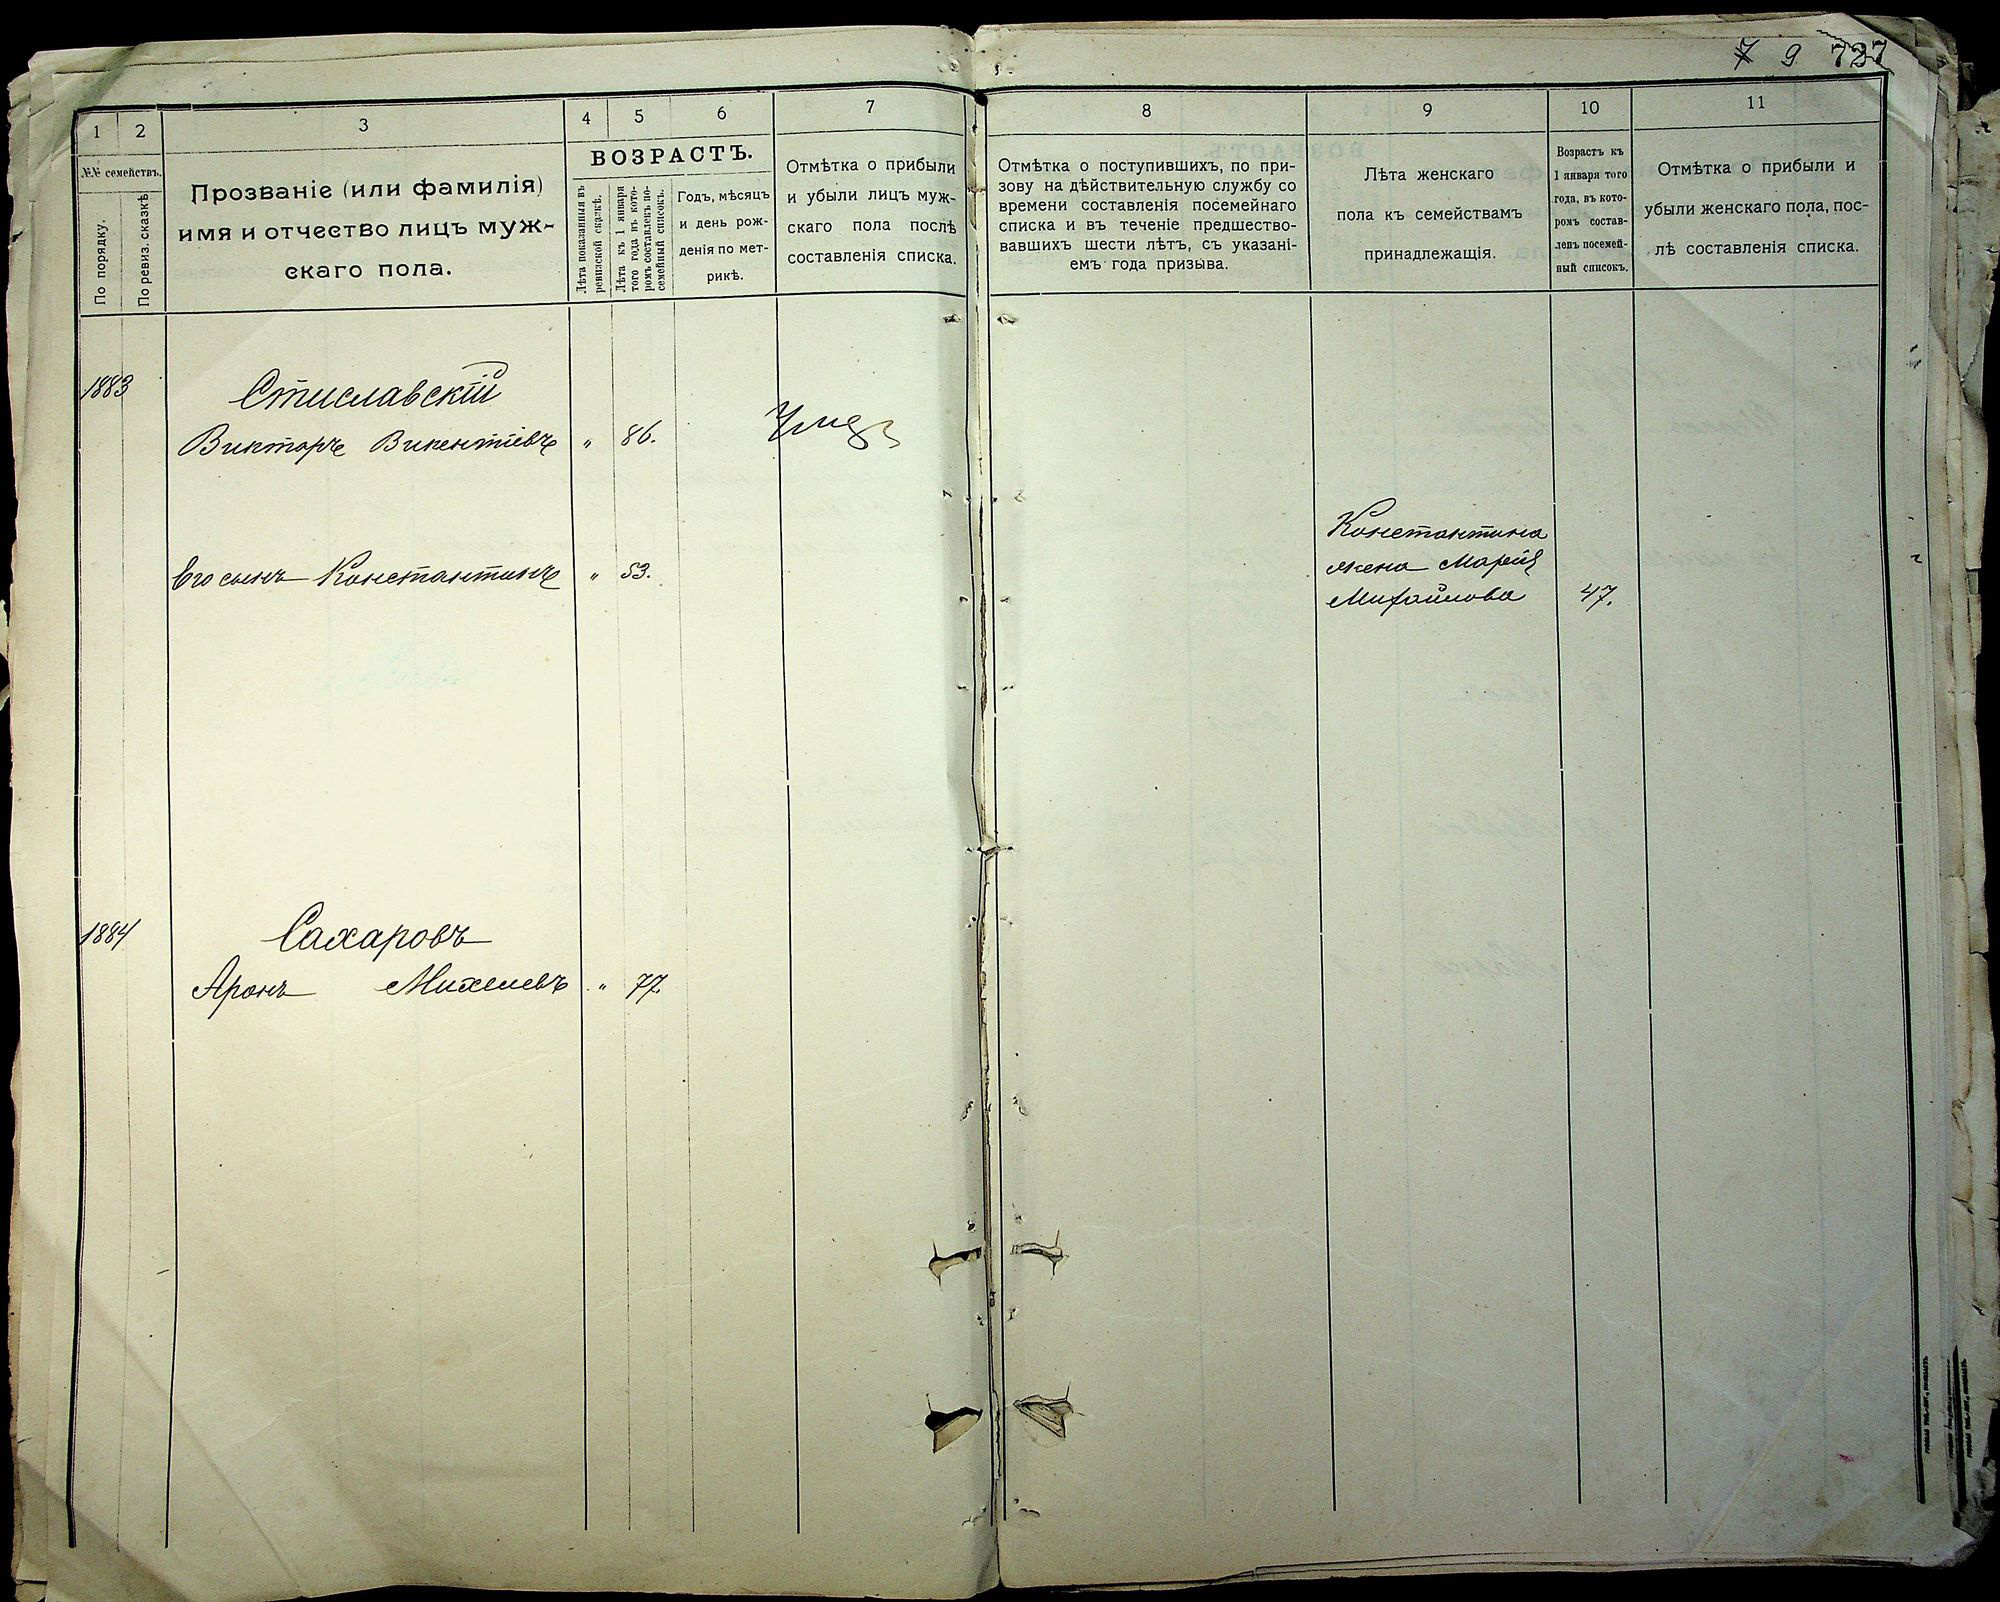 7 9 727
1 2 3 4 5 6 7 8 9 10 11
№№ семействъ.
По порядку.
По ревиз. сказкѣ
Прозваніе (или фамилія)
имя и отчество лицъ муж-
скаго пола.
ВОЗРАСТЪ.
Лѣта показанныя въ
ревизской сказкѣ.
Лѣта къ 1 января
того года въ кото-
ромъ составлекъ по-
семейный списокъ.
Годъ, мѣсяцъ
и день рож-
денія по мет-
рикѣ.
Отмѣтка о прибыли
и убыли лицъ муж-
скаго пола послѣ
составленія списка.
Отмѣтка о поступившихъ, по при-
зову на дѣйствительную службу со
времени составленія посемейнаго
списка и въ теченіе предшество-
вавшихъ шести лѣтъ, съ указані-
емъ года призыва.
Лѣта женскаго
пола къ семействамъ
принадлежащія.
Возрастъ къ
1 января того
года, въ кото-
ромъ состав-
ленъ посемей-
ный списокъ.
Отмѣтка о прибыли и
убыли женскаго пола, пос-
лѣ составленія списка.
1883 Стиславскій
Викторъ Викентіевъ " 86.
Его сынъ Константинъ " 53.
Константина
жена Марія
Михайлова 47.
1884 Сахаровъ
Аронъ Михелевъ " 77.